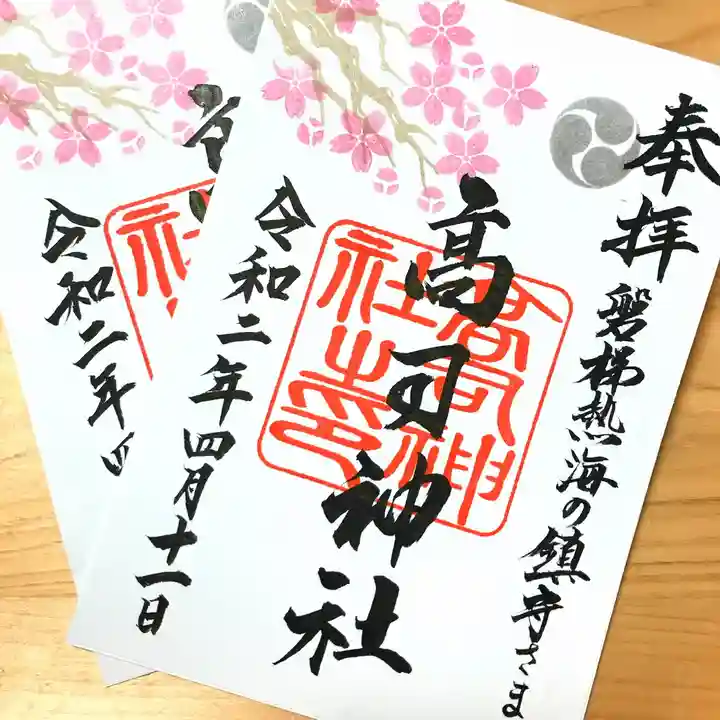 奉拝
磐梯熱海の鎮守さま
高司神社
高司神
社之印
令和二年四月十一日
令和二年